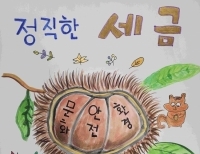 정직한 세금
문화 안전 환경